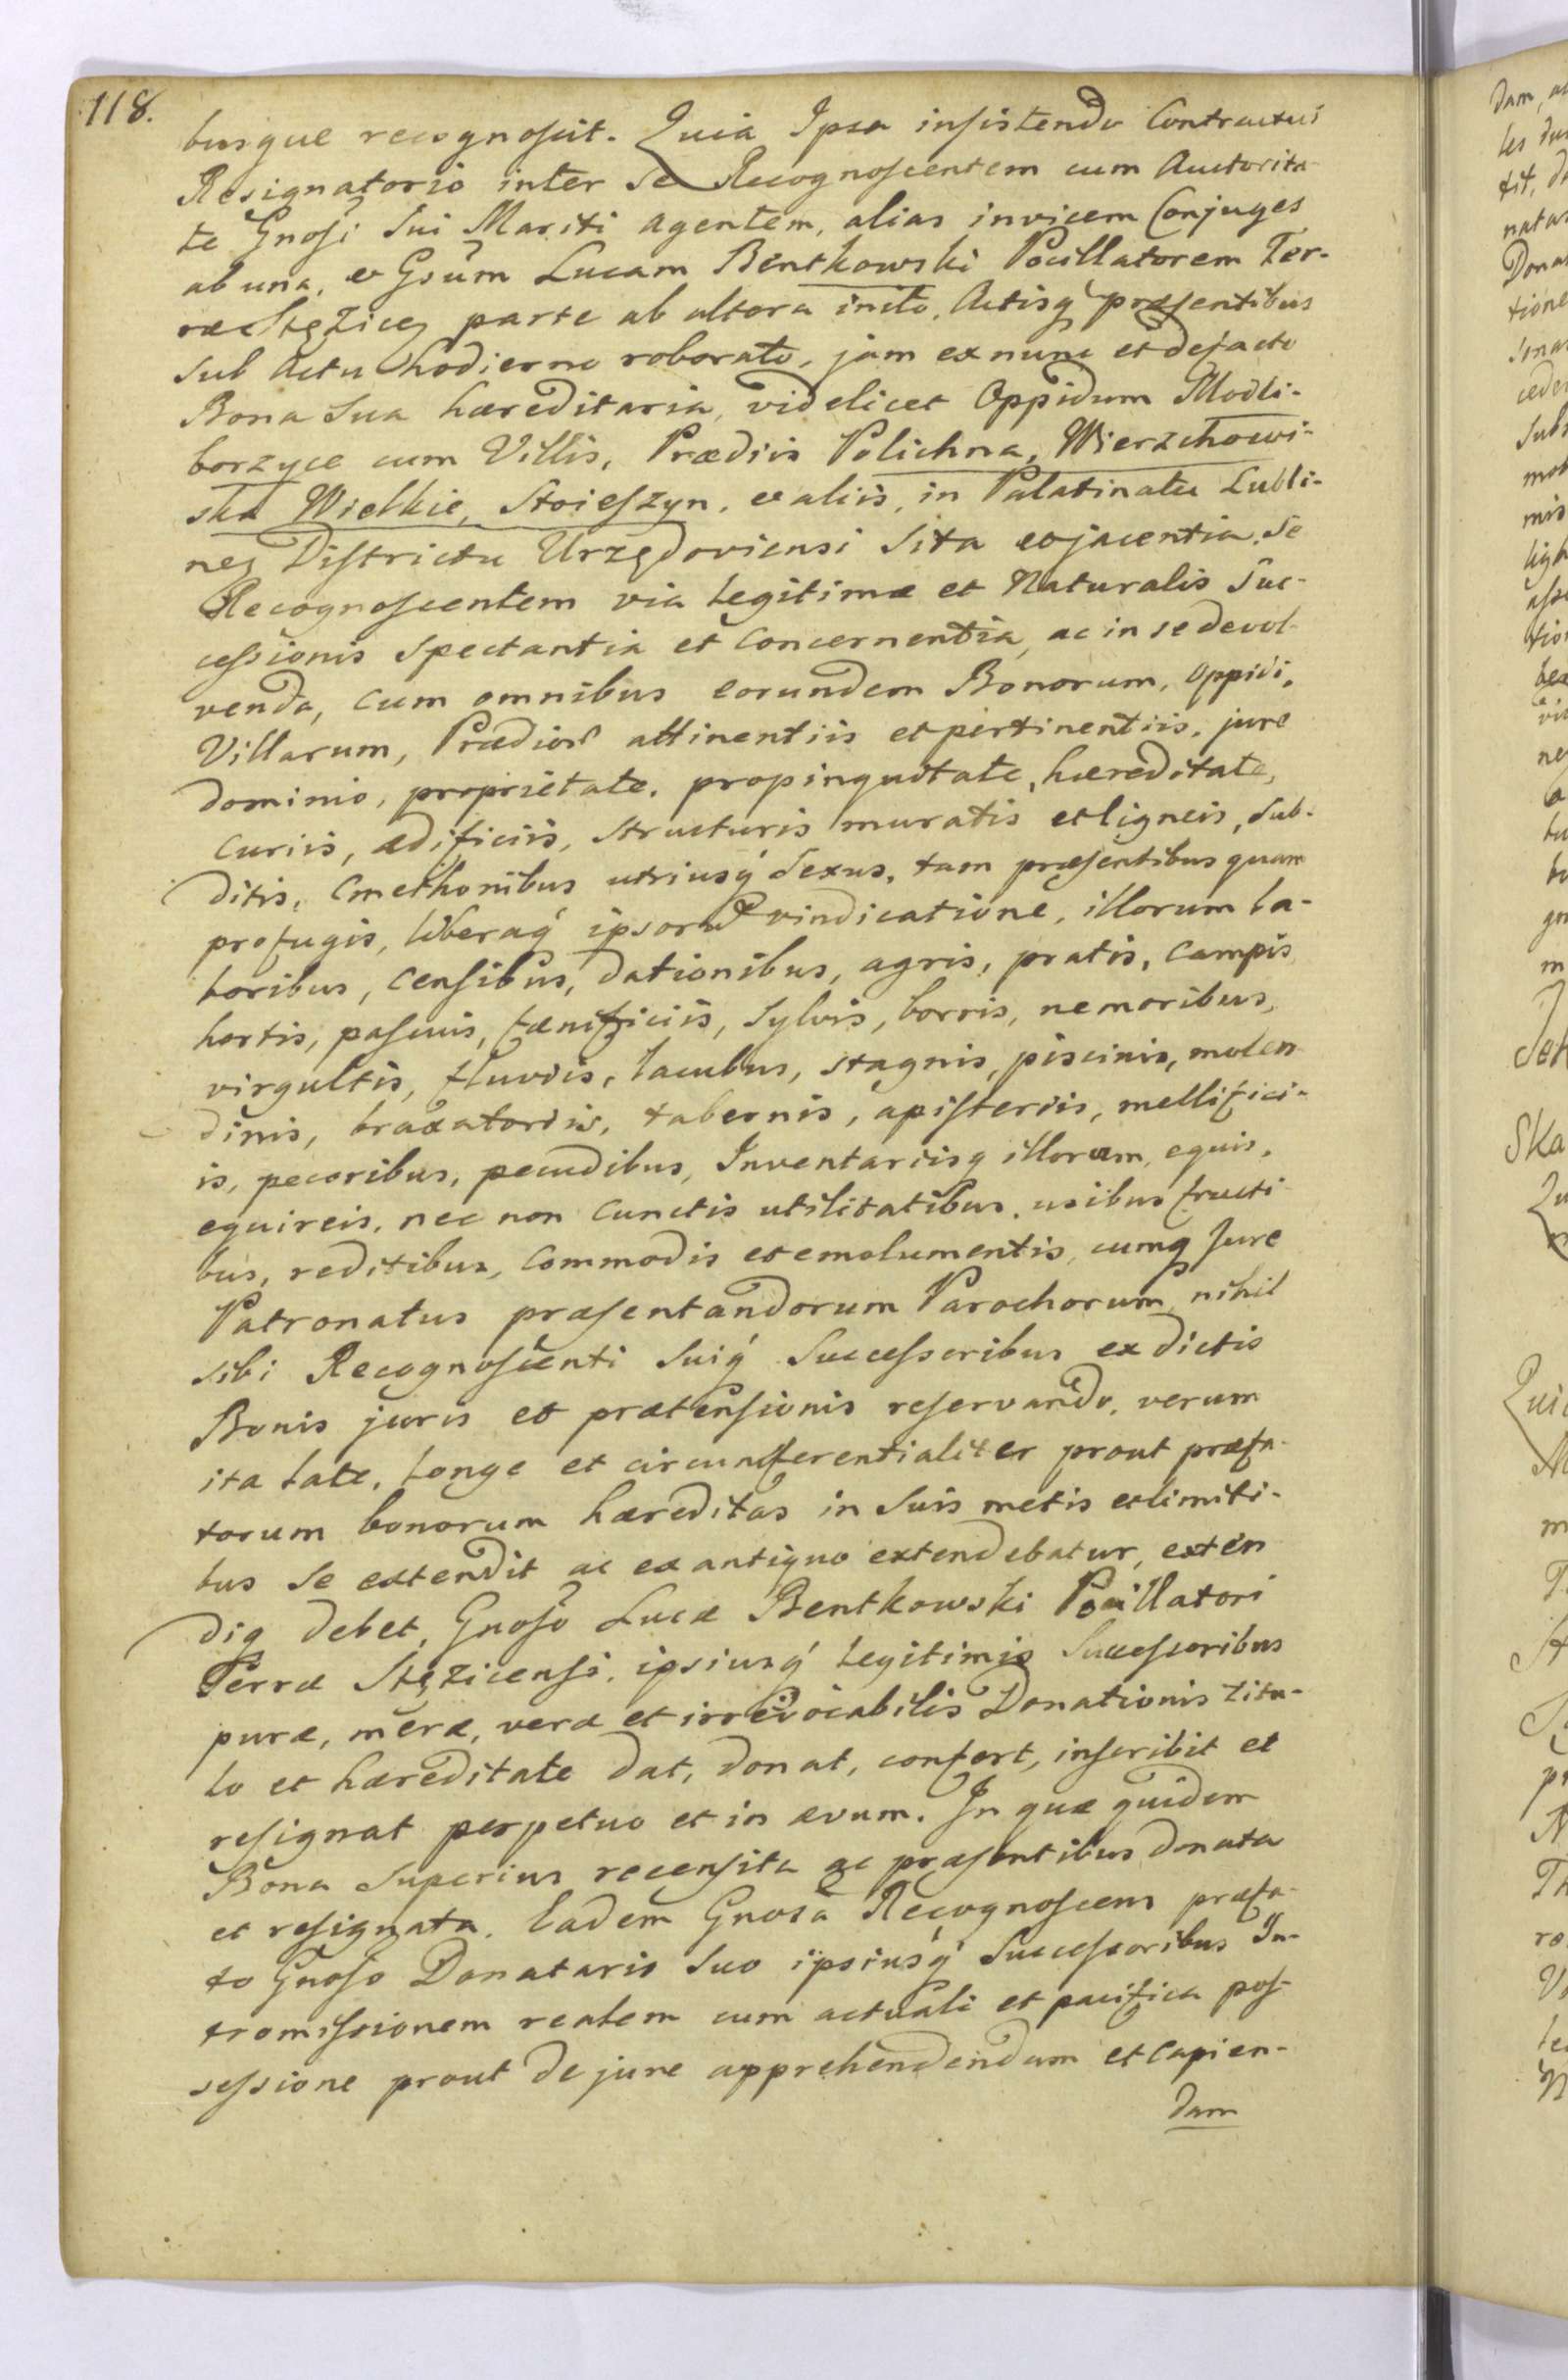 118.
busque recognoscit. Quia Ipsa insistendo Contractui
Resignatorio inter se Recognoscentem cum Auctorita-
te Gnosi sui Mariti agentem, alias invicem Conjuges
ab una, et Gsum Lucam Bentkowski Pocillatorem Ter-
ræ Stęzicen parte ab altera inito, Actisq præsentibus
sub Actu hodierno roborato, jam ex nunc et de facto
Bona sua hæreditaria, videlicet Oppidum Modli-
borzyce cum Villis, Prædiis Polichna, Wierzchowi-
ska Wielkie, Stoieszyn, et aliis, in Palatinatu Lubli-
nen Districtu Urzędoviensi sita et jacentia, se
Recognoscentem via legitimæ et Naturalis suc-
cessionis spectantia et concernentia, ac in se devol-
venda, cum omnibus eorundem Bonorum, Oppidi,
Villarum, Prædior attinentiis et pertinentiis, jure
dominio, proprietate, propinquitate, hæreditate,
curiis, ædificiis, structuris muratis et ligneis, sub-
ditis, Cmethonibus utriusq sexus, tam præsentibus quam
profugis, liberaq ipsoru vindicatione, illorum la-
boribus, censibus, dationibus, agris, pratis, campis
hortis, pascuis, fænificiis, sylvis, borris, nemoribus,
virgultis, fluviis, lacubus, stagnis, piscinis, molen-
dinis, braxatoriis, tabernis, apisteriis, mellifici-
is, pecoribus, pecudibus, Inventariisq illorum, equis,
equireis, nec non cunctis utilitatibus, usibus fructi-
bus, reditibus, commodis et emolumentis, cumq Jure
Patronatus præsentandorum Parochorum, nihil
sibi Recognoscenti suiq Successoribus ex dictis
Bonis juris et prætensionis reservando, verum
ita late, longe et circumferentialiter prout præfa-
torum bonorum hæreditas in suis metis et limiti-
bus se extendit ac ex antiquo extendebatur, exten
diq debet, Gnoso Lucæ Bentkowski Pocillatori
Terræ Stęzicensi, ipsiusq legitimis Successoribus
puræ, meræ, veræ et irrevocabilis Donationis titu-
lo et hæreditate dat, donat, confert, inscribit et
resignat perpetuo et in ævum. In quæ quidem
Bona superius recensita ac præsentibus donata
et resignata. Eadem Gnosa Recognoscens præfa-
to Gnoso Donatario suo ipsiusq Successoribus In-
tromissionem realem cum actuali et pacifica pos-
sessione prout de jure apprehendendam et capien-
dam